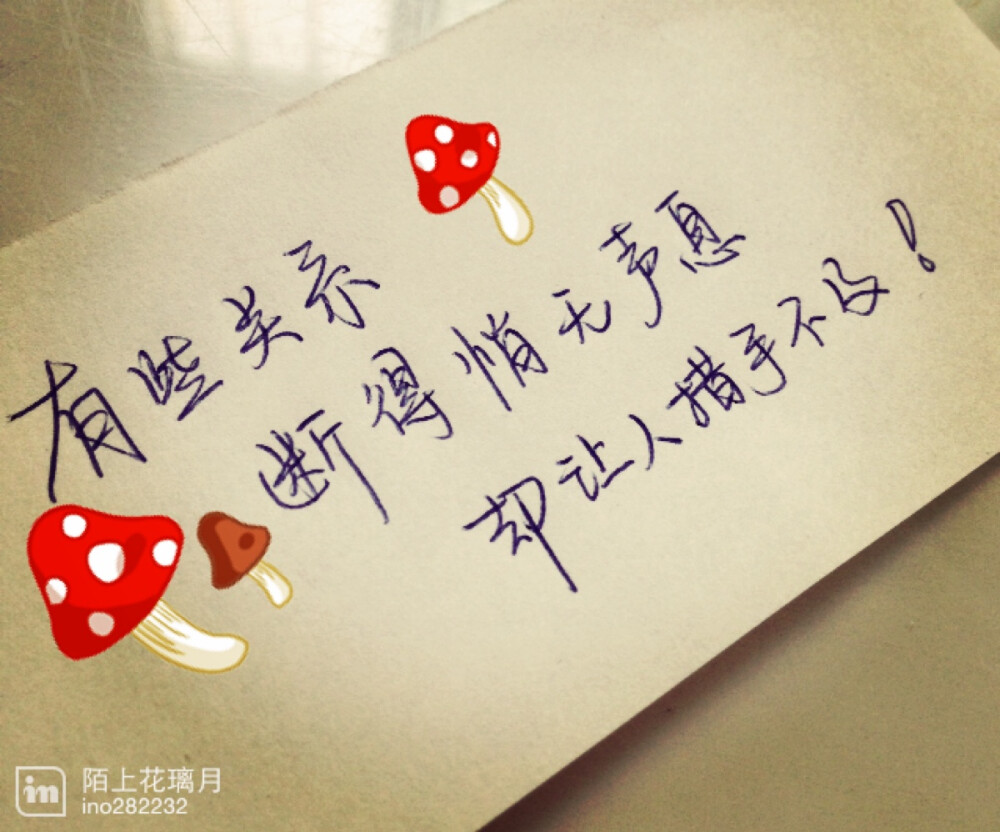 有些关系
断得悄无声息
却让人措手不及！
im 陌上花璃月
ino282232